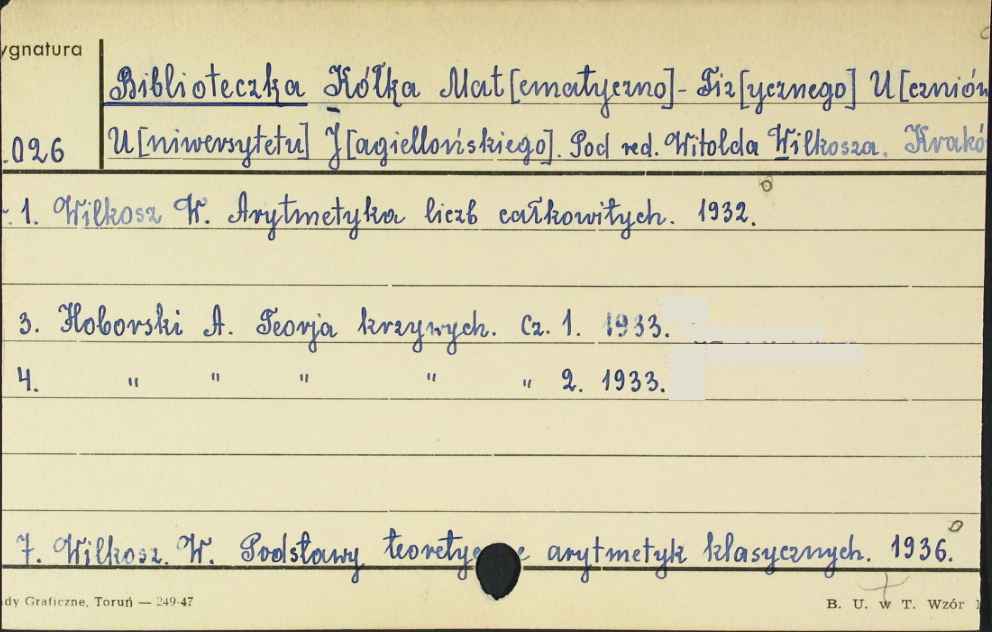 ygnatura
Biblioteczka Kółka Mat[ematyczno]-Fiz[ycznego] U[czniów
.026 U[niwersytetu] J[agiellońskiego]. Pod red. Witolda Wilkosza. Krakó
1. Wilkosz W. Arytmetyka liczb całkowitych. 1932.
3. Hoborski A. Teorja krzywych. Cz. 1. 1933.
4. " " " " " 2. 1933.
7. Wilkosz. W. Podstawy teoretyc e arytmetyk klasycznych. 1936.
dy Graficzne, Toruń — 249-47
B. U. w T. Wzór